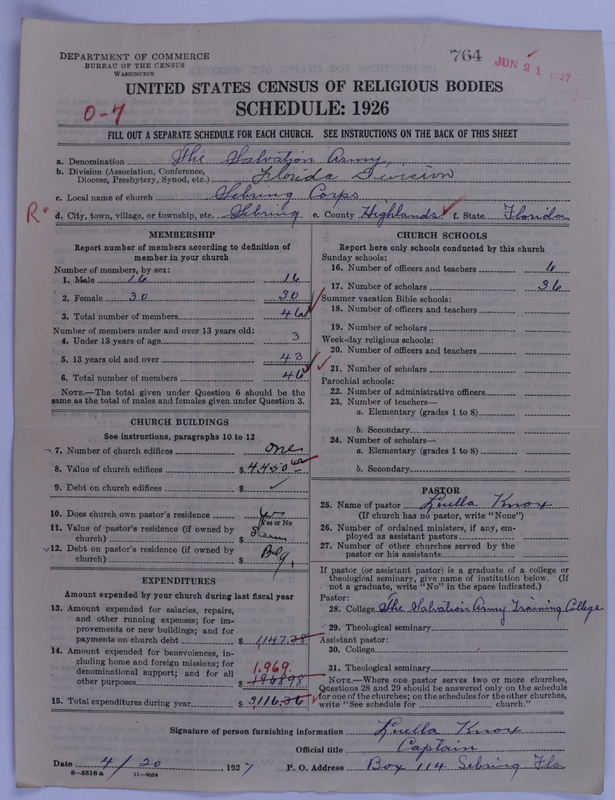 764
JUN 21 1927
DEPARTMENT OF COMMERCE
BUREAU OF THE CENSUS
WASHINGTON
UNITED STATES CENSUS OF RELIGIOUS BODIES
SCHEDULE: 1926
0-7
FILL OUT A SEPARATE SCHEDULE FOR EACH CHURCH. SEE INSTRUCTIONS ON THE BACK OF THIS SHEET
a. Denomination The Salvation Army
b. Division (Association, Conference, Diocese, Presbytery, Synod, etc.) Florida Division
c. Local name of church Sebring Corps
R. d. City, town, village, or township, etc. Sebring e. County Highlands f. State Florida
MEMBERSHIP
Report number of members according to definition of
member in your church
Number of members, by sex:
1. Male 16 16
2. Female 30 30
3. Total number of members 46
Number of members under and over 13 years old:
4. Under 13 years of age 3
5. 13 years old and over 43
6. Total number of members 46
NOTE.—The total given under Question 6 should be the
same as the total of males and females given under Question 3.
CHURCH BUILDINGS
See instructions, paragraphs 10 to 12
7. Number of church edifices one
8. Value of church edifices $ 4,450
9. Debt on church edifices $
10. Does church own pastor's residence yes
Yes or No
11. Value of pastor's residence (if owned by
church) $
12. Debt on pastor's residence (if owned by
church) $
EXPENDITURES
Amount expended by your church during last fiscal year
13. Amount expended for salaries, repairs,
and other running expenses; for im-
provements or new buildings; and for
payments on church debt $ 1147.38
14. Amount expended for benevolences, in-
cluding home and foreign missions; for
denominational support; and for all
other purposes $ 1968 98
1.969.
15. Total expenditures during year $ 3,116.36
CHURCH SCHOOLS
Report here only schools conducted by this church
Sunday schools:
16. Number of officers and teachers 6
17. Number of scholars 36
Summer vacation Bible schools:
18. Number of officers and teachers
19. Number of scholars
Week-day religious schools:
20. Number of officers and teachers
21. Number of scholars
Parochial schools:
22. Number of administrative officers
23. Number of teachers—
a. Elementary (grades 1 to 8)
b. Secondary
24. Number of scholars—
a. Elementary (grades 1 to 8)
b. Secondary
PASTOR
25. Name of pastor Luella Knox
(If church has no pastor, write "None")
26. Number of ordained ministers, if any, em-
ployed as assistant pastors
27. Number of other churches served by the
pastor or his assistants
If pastor (or assistant pastor) is a graduate of a college or
theological seminary, give name of institution below. (If
not a graduate, write "No" in the space indicated.)
Pastor:
28. College The Salvation Army Training College
29. Theological seminary
Assistant pastor:
30. College
31. Theological seminary
NOTE.—Where one pastor serves two or more churches,
Questions 28 and 29 should be answered only on the schedule
for one of the churches; on the schedules for the other churches,
write "See schedule for church."
Signature of person furnishing information Luella Knox
Official title Captain
Date 4/20 1927 P. O. Address Box 114 Sebring Fla
8—5518 a 11—9034